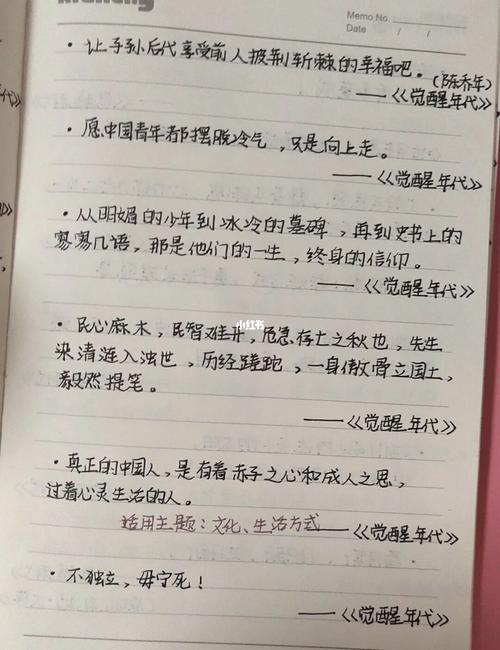 Memo No.
Date / /
· 让子孙后代享受前人披荆斩棘的幸福吧。(陈乔年)
——《觉醒年代》
· 愿中国青年都摆脱冷气，只是向上走。
——《觉醒年代》
· 从明媚的少年到冰冷的墓碑，再到史书上的
寥寥几语，那是他们的一生，终身的信仰。
——《觉醒年代》
小红书
· 民心麻木，民智难开，危急存亡之秋也，先生
染清涟入浊世，历经蹉跎，一身傲骨立国土，
毅然提笔。
——《觉醒年代》
· 真正的中国人，是有着赤子之心和成人之思，
过着心灵生活的人。
适用主题：文化、生活方式——《觉醒年代》
· 不独立，毋宁死！
——《觉醒年代》